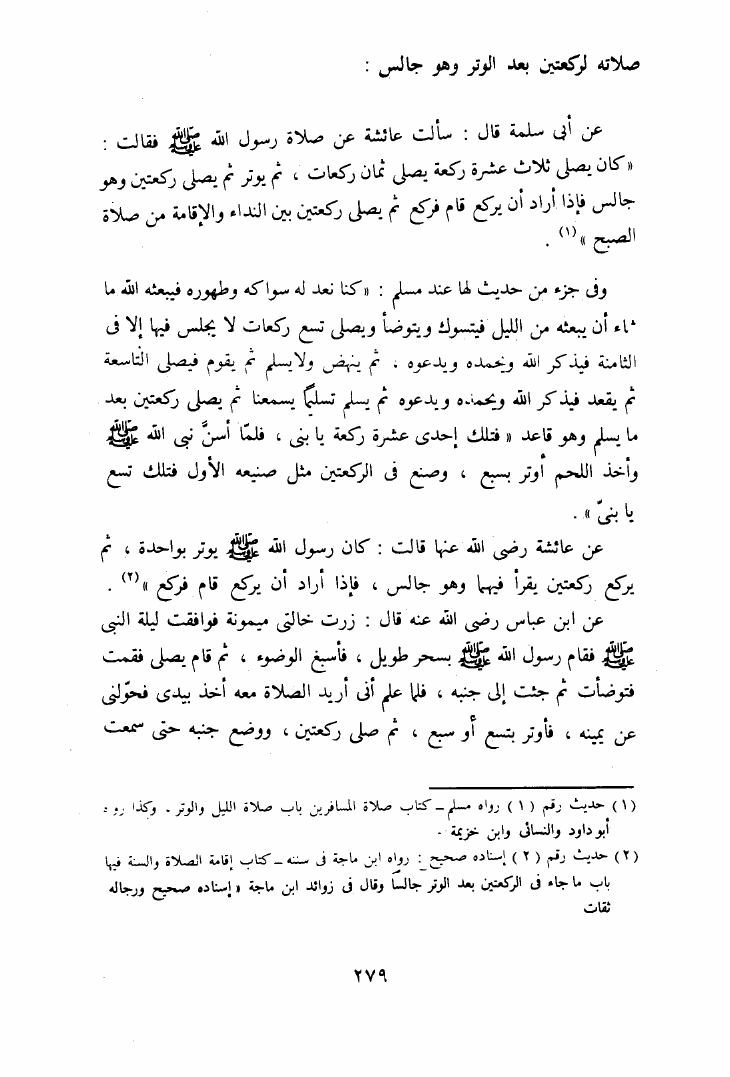 صلاته لركعتين بعد الوتر وهو جالس :
عن أبى سلمة قال : سألت عائشة عن صلاة رسول الله ﷺ فقالت :
«كان يصلى ثلاث عشرة ركعة يصلى ثمان ركعات ، ثم يوتر ثم يصلى ركعتين وهو
جالس فإذا أراد أن يركع قام فركع ثم يصلى ركعتين بين النداء والإقامة من صلاة
الصبح »(١) .
وفى جزء من حديث لها عند مسلم : «كنا نعد له سواكه وطهوره فيبعثه الله ما
شاء أن يبعثه من الليل فيتسوك ويتوضأ ويصلى تسع ركعات لا يجلس فيها إلا فى
الثامنة فيذكر الله ويحمده ويدعوه ، ثم ينهض ولايسلم ثم يقوم فيصلى التاسعة
ثم يقعد فيذكر الله ويحمده ويدعوه ثم يسلم تسليمًا يسمعنا ثم يصلى ركعتين بعد
ما يسلم وهو قاعد « فتلك إحدى عشرة ركعة يا بنى ، فلمّا أسنَّ نبى الله ﷺ
وأخذ اللحم أوتر بسبع ، وصنع فى الركعتين مثل صنيعه الأول فتلك تسع
يا بنىّ » .
عن عائشة رضى الله عنها قالت : كان رسول الله ﷺ يوتر بواحدة ، ثم
يركع ركعتين يقرأ فيهما وهو جالس ، فإذا أراد أن يركع قام فركع »(٢) .
عن ابن عباس رضى الله عنه قال : زرت خالتى ميمونة فوافقت ليلة النبى
ﷺ فقام رسول الله ﷺ بسحر طويل ، فأسبغ الوضوء ، ثم قام يصلى فقمت
فتوضأت ثم جئت إلى جنبه ، فلما علم أنى أريد الصلاة معه أخذ بيدى فحوّلنى
عن يمينه ، فأوتر بتسع أو سبع ، ثم صلى ركعتين ، ووضع جنبه حتى سمعت
(١) حديث رقم (١) رواه مسلم ــ كتاب صلاة المسافرين باب صلاة الليل والوتر . وكذا رواه
أبو داود والنسائى وابن خزيمة .
(٢) حديث رقم (٢) إسناده صحيح : رواه ابن ماجة فى سننه ــ كتاب إقامة الصلاة والسنة فيها
باب ما جاء فى الركعتين بعد الوتر جالسًا وقال فى زوائد ابن ماجة « إسناده صحيح ورجاله
ثقات
٢٧٩